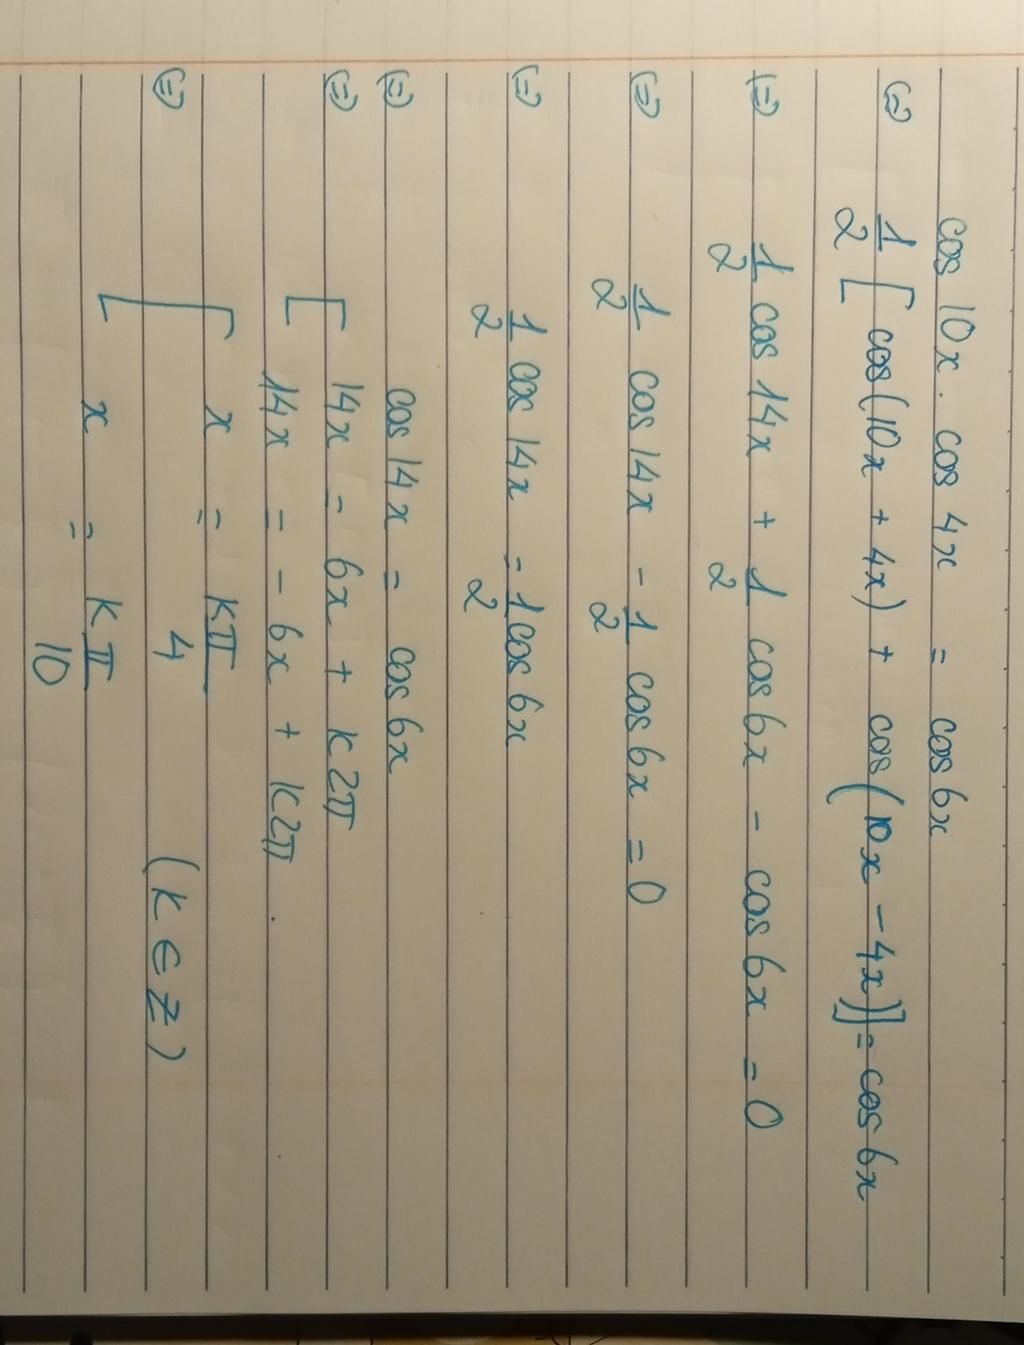 cos 10x . cos 4x = cos 6x
(=) 1/2 [ cos(10x + 4x) + cos(10x - 4x)] = cos 6x
(=) 1/2 cos 14x + 1/2 cos 6x - cos 6x = 0
(=) 1/2 cos 14x - 1/2 cos 6x = 0
(=) 1/2 cos 14x = 1/2 cos 6x
(=) cos 14x = cos 6x
(=) [ 14x = 6x + k2π
14x = - 6x + k2π
(=) [ x = kπ/4
x = kπ/10 (k ∈ Z)